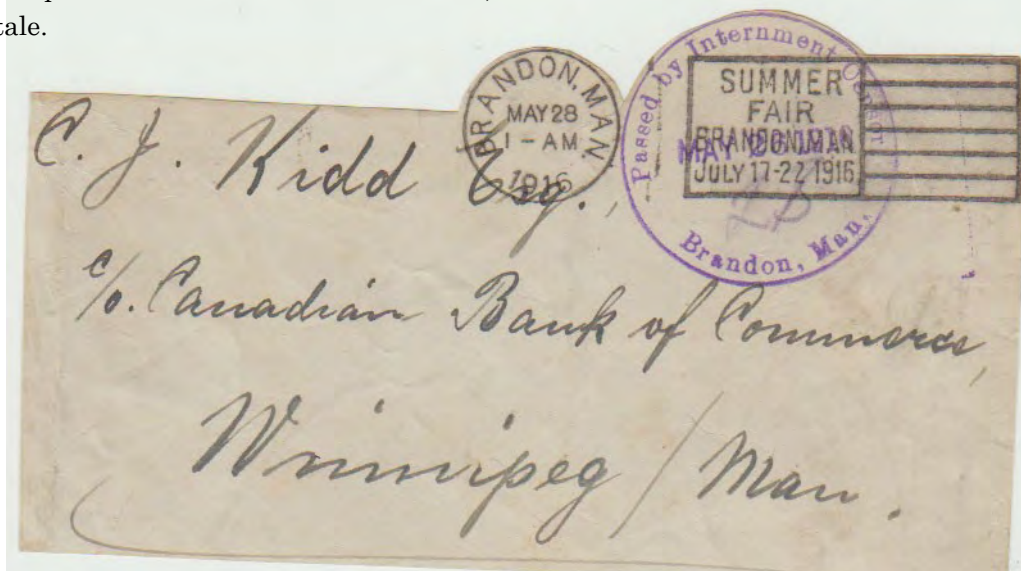 tale.
BRANDON, MAN.
MAY 28
1 - AM
1916
Passed by Internment Censor
MAY
Brandon, Man.
SUMMER
FAIR
BRANDON, MAN
JULY 17-22 1916
C. J. Kidd Esq.,
c/o. Canadian Bank of Commerce,
Winnipeg / Man.